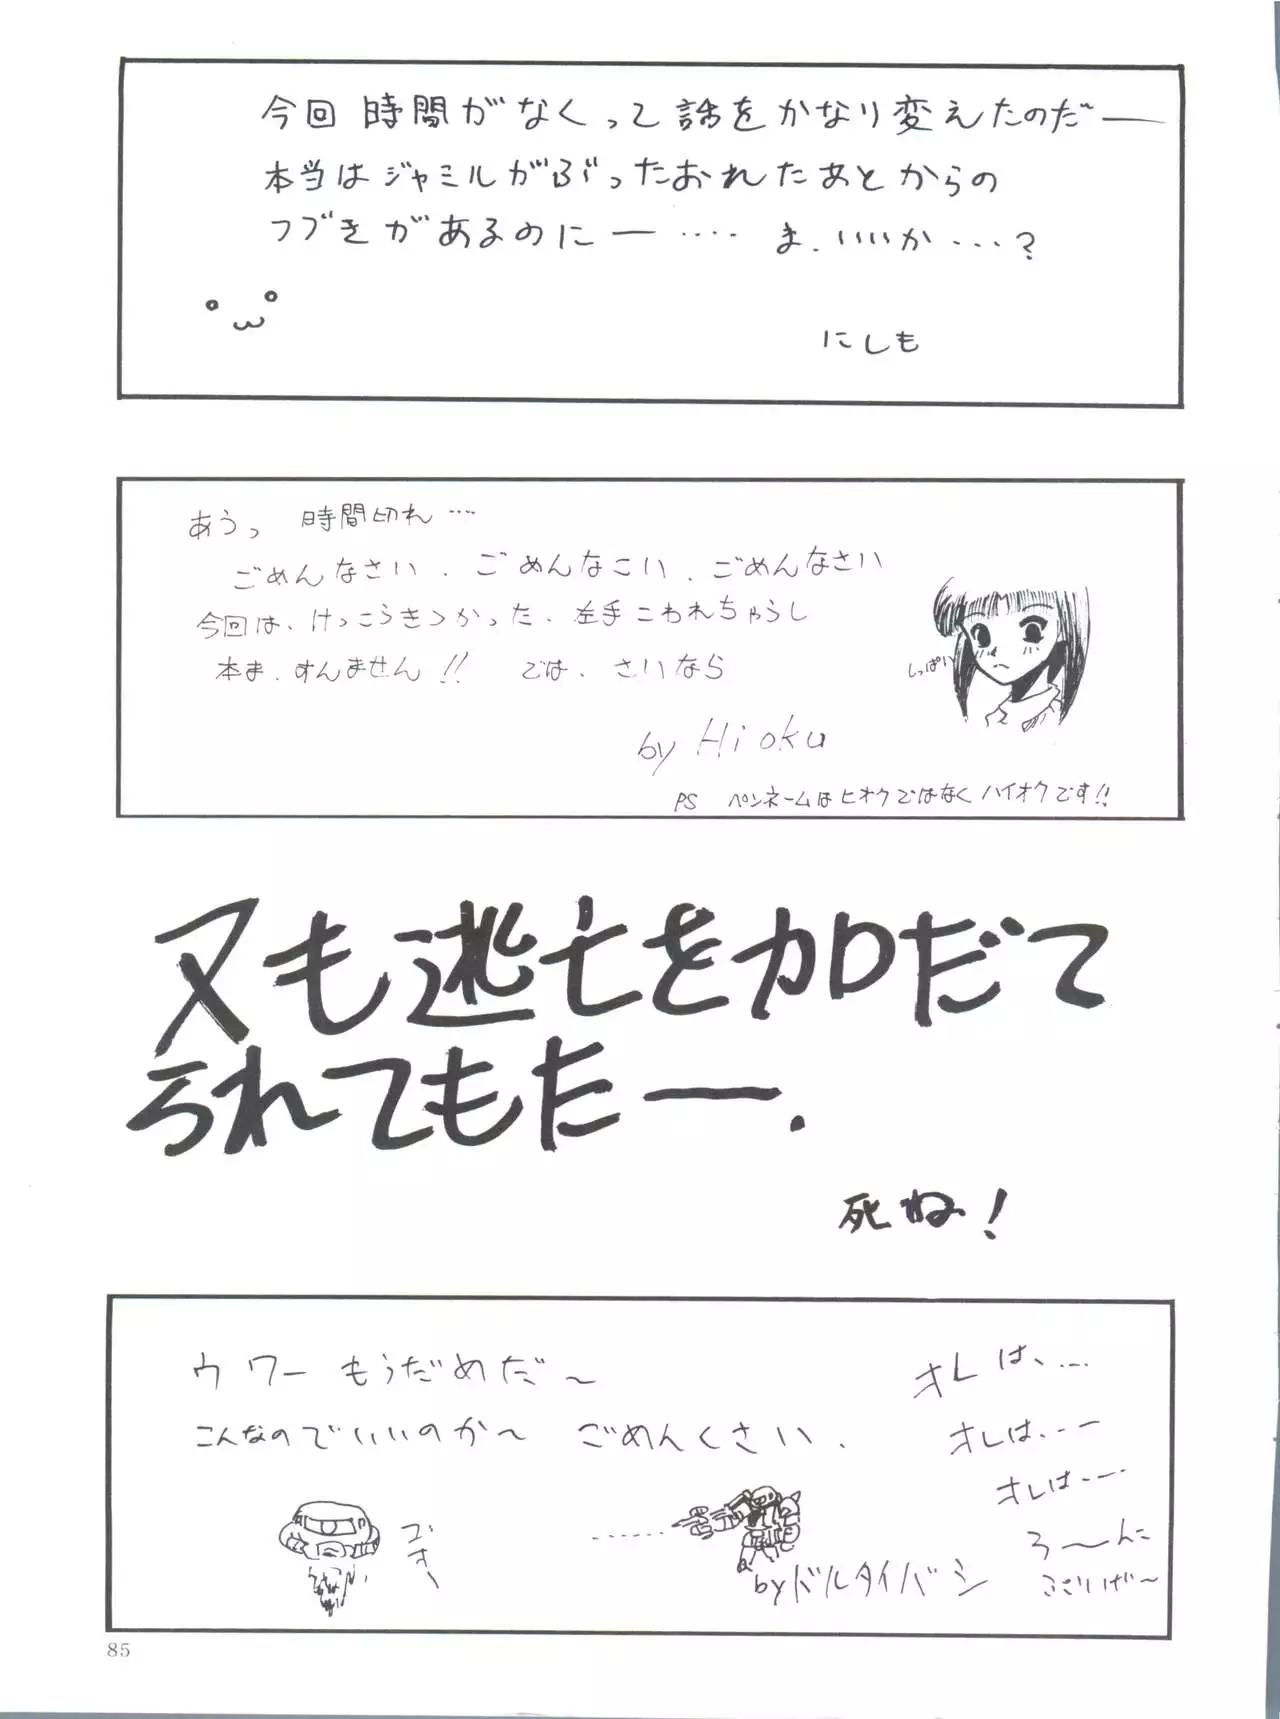 今回 時間がなくって話をかなり変えたのだー
本当はジャミルがぶったおれたあとからの
つづきがあるのにー・・・・ ま、いいか・・・?
にしも
あうっ 時間切れ・・・
ごめんなさい、ごめんなこい、ごめんなさい
今回は、けっこうきつかった、左手こわれちゃうし
本ま、すんません!! では、さいなら
しっぱい
by Hioku
PS ペンネームはヒオクではなくハイオクです!!
又も逃亡をカロだて
られてもたー.
死ね!
ウワー もうだめだ〜
こんなのでいいのか〜 ごめんくさい.
オレは、・・・
オレは、・・・
オレは・・・
by ドルタイバシ
85